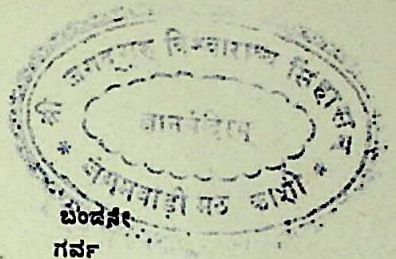 श्री जगद्गुरु विश्वाराध्य सिंहासन
* जंगमवाड़ी मठ काशी *
ಬಂಡನೇ
ಗರ್ವ